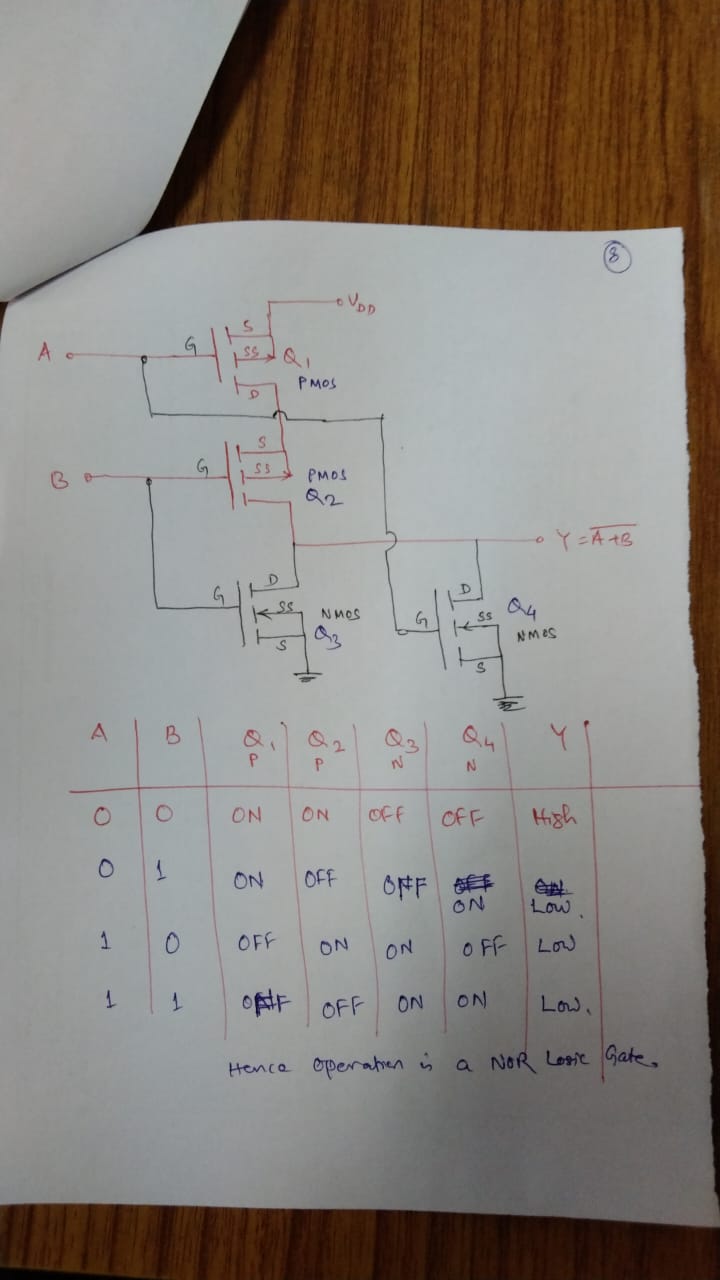 8
VDD
S
A G SS Q1
D PMOS
S
B G SS PMOS
Q2
Y = \overline{A+B}
D D
G SS NMOS G SS Q4
S Q3 S NMOS
A B Q1 Q2 Q3 Q4 Y
P P N N
0 0 ON ON OFF OFF High
0 1 ON OFF OFF ON Low.
1 0 OFF ON ON OFF Low
1 1 OFF OFF ON ON Low.
Hence operation is a NOR Logic Gate.